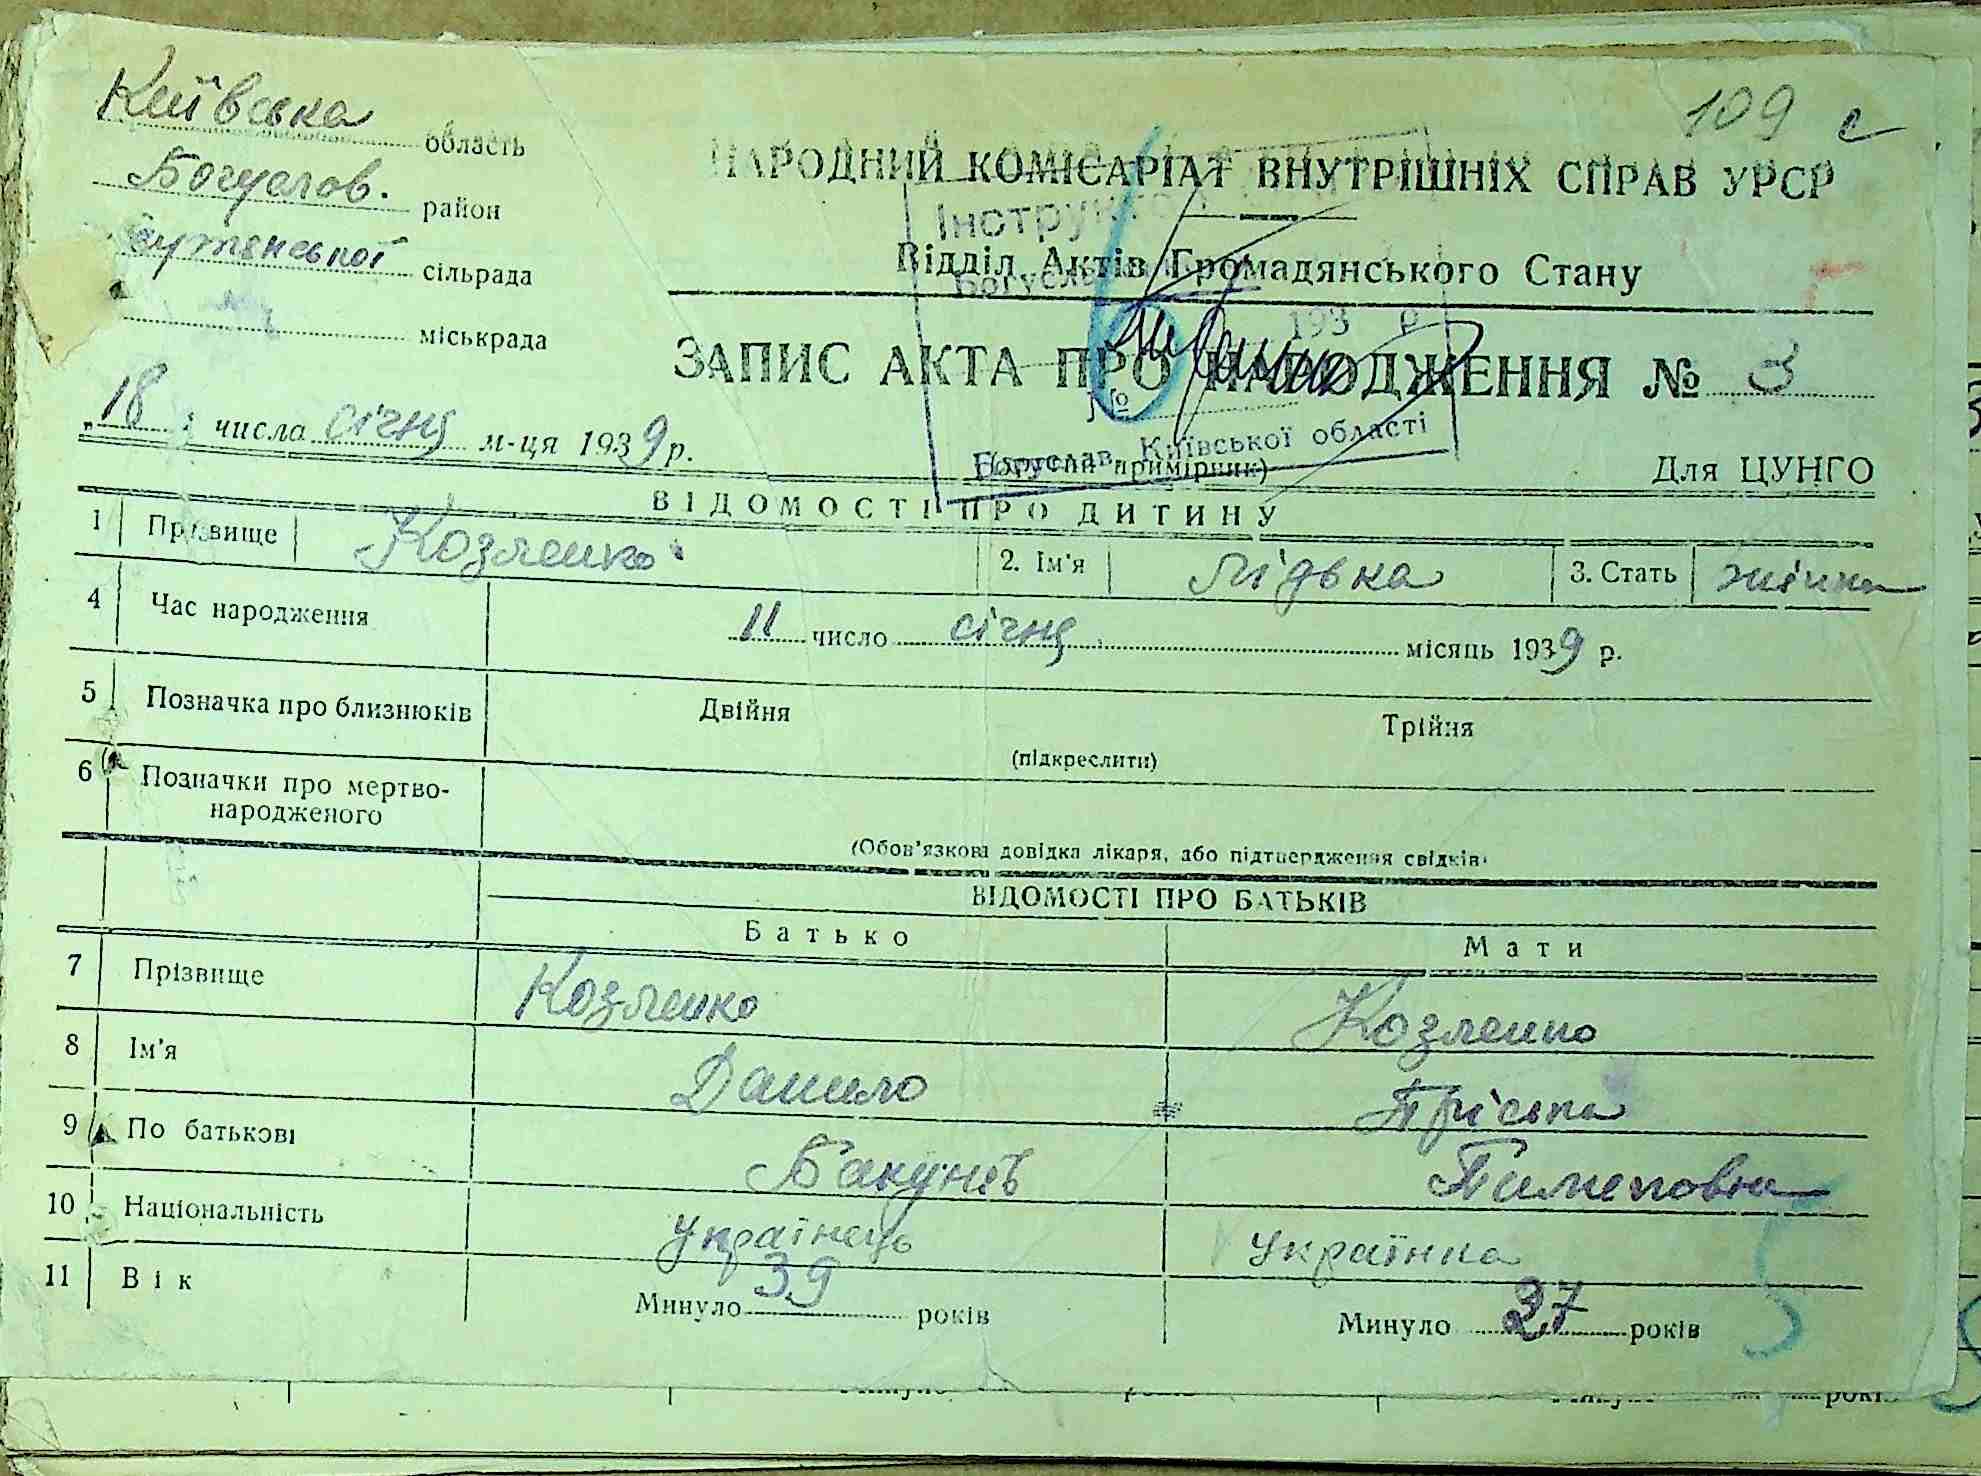 109 с
Київська область
Богуслов. район
сільрада
міськрада
НАРОДНИЙ КОМІСАРІАТ ВНУТРІШНІХ СПРАВ УРСР
Відділ Актів Громадянського Стану
ЗАПИС АКТА ПРО НАРОДЖЕННЯ № 3
"18" числа січня м-ця 1939 р.
193 р
№
Богуслав, Київської області
примірник)
Для ЦУНГО
ВІДОМОСТІ ПРО ДИТИНУ
1 Прізвище Козленко 2. Ім'я Лідька 3. Стать жінка
4 Час народження 11 число січня місяць 1939 р.
5 Позначка про близнюків Двійня Трійня
(підкреслити)
6 Позначки про мертво-
народженого
(Обов'язкова довідка лікаря, або підтвердження свідків)
ВІДОМОСТІ ПРО БАТЬКІВ
Батько Мати
7 Прізвище Козленко Козленко
8 Ім'я Данило Пріська
9 По батькові
10 Національність Українець Українка
11 Вік Минуло 39 років Минуло 37 років